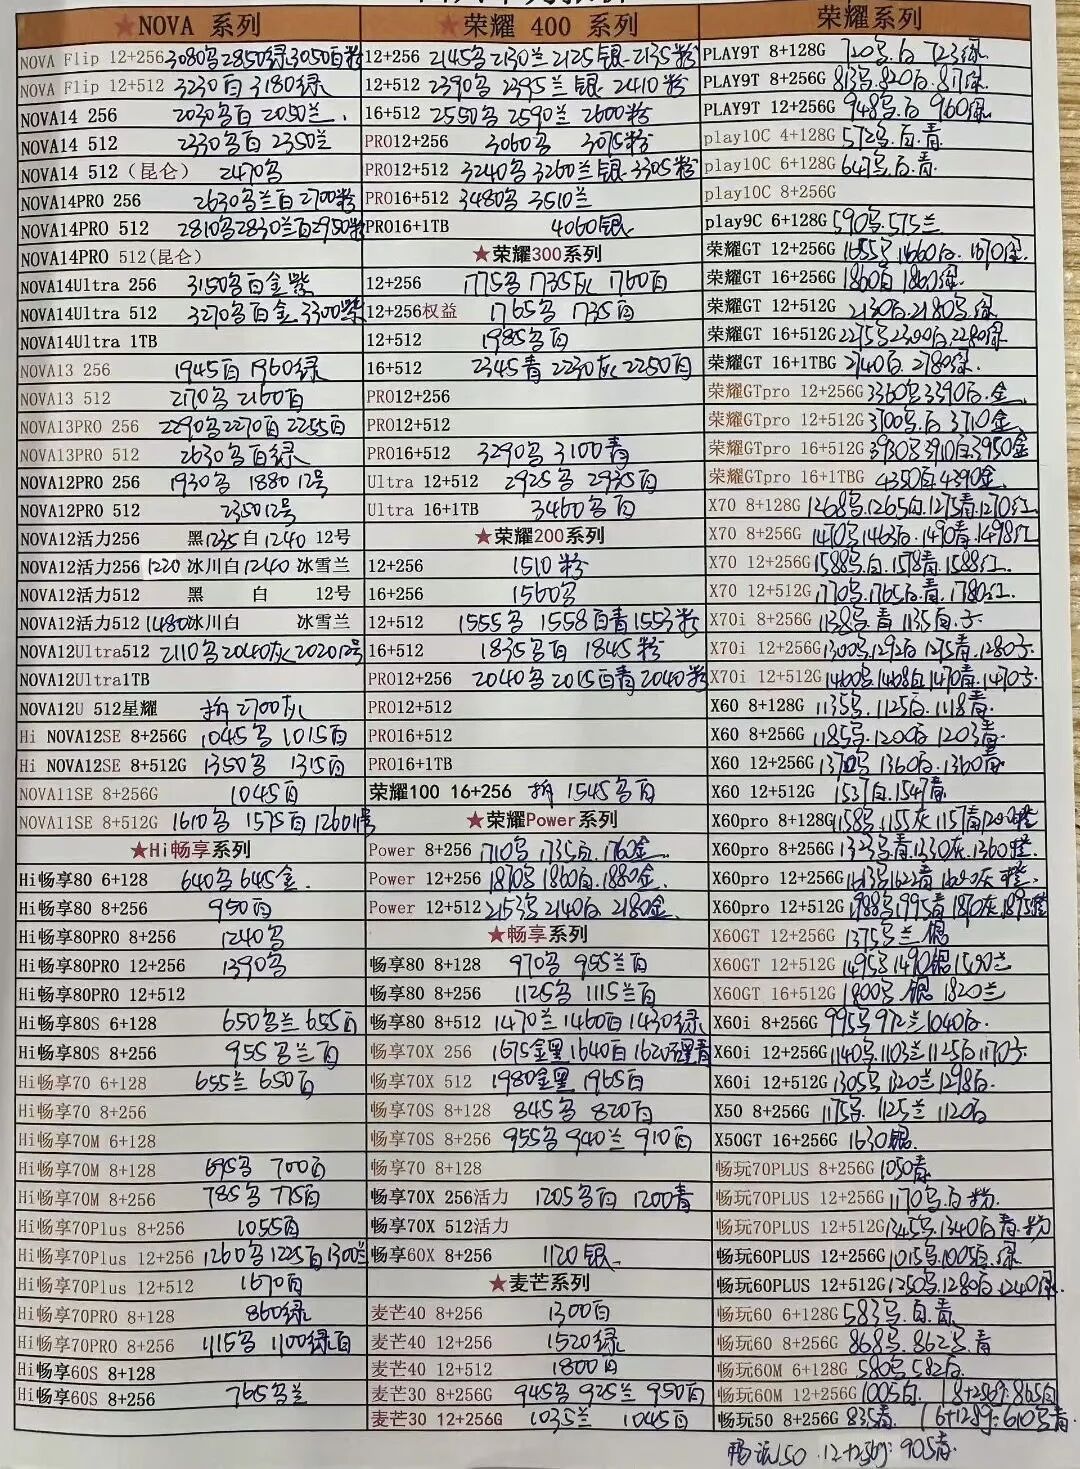 ★NOVA 系列
NOVA Flip 12+256 3080黑 2850绿 3050白粉
NOVA Flip 12+512 3230白 3180绿
NOVA14 256 2030黑白 2050兰.
NOVA14 512 2330黑白 2350兰
NOVA14 512（昆仑） 2470黑
NOVA14PRO 256 2630黑兰白 2700粉
NOVA14PRO 512 2810黑 2830兰白 2950粉
NOVA14PRO 512(昆仑)
NOVA14Ultra 256 3150黑白金紫
NOVA14Ultra 512 3270黑白金 3300紫
NOVA14Ultra 1TB
NOVA13 256 1945白 1960绿
NOVA13 512 2170黑 2160白
NOVA13PRO 256 2290黑 2270白 2255白
NOVA13PRO 512 2630黑白绿
NOVA12PRO 256 1930黑 1880 12号
NOVA12PRO 512 2350 12号
NOVA12活力256 黑1235 白1240 12号
NOVA12活力256 1220 冰川白1240 冰雪兰
NOVA12活力512 黑 白 12号
NOVA12活力512 1480冰川白 冰雪兰
NOVA12Ultra512 2110黑 2040灰 2020 12号
NOVA12Ultra1TB
NOVA12U 512星耀 拆 2700灰
Hi NOVA12SE 8+256G 1045黑 1015白
Hi NOVA12SE 8+512G 1350黑 1315白
NOVA11SE 8+256G 1045白
NOVA11SE 8+512G 1610黑 1575白 1260 11号
★Hi畅享系列
Hi畅享80 6+128 640黑 645金.
Hi畅享80 8+256 950白
Hi畅享80PRO 8+256 1240黑
Hi畅享80PRO 12+256 1390黑
Hi畅享80PRO 12+512
Hi畅享80S 6+128 650黑兰 655白
Hi畅享80S 8+256 955黑兰白
Hi畅享70 6+128 655兰 650白
Hi畅享70 8+256
Hi畅享70M 6+128
Hi畅享70M 8+128 695黑 700白
Hi畅享70M 8+256 785黑 775白
Hi畅享70Plus 8+256 1055白
Hi畅享70Plus 12+256 1260黑 1225白 1300兰
Hi畅享70Plus 12+512 1670白
Hi畅享70PRO 8+128 860绿
Hi畅享70PRO 8+256 1115黑 1100绿白
Hi畅享60S 8+128
Hi畅享60S 8+256 765黑兰
★荣耀 400 系列
12+256 2145黑 2130兰 2125银 2135粉
12+512 2390黑 2395兰银 2410粉
16+512 2550黑 2590兰 2600粉
PRO12+256 3060黑 3075粉
PRO12+512 3240黑 3260兰银 3305粉
PRO16+512 3480黑 3510兰
PRO16+1TB 4060银
★荣耀300系列
12+256 1775黑 1735灰 1760白
12+256权益 1765黑 1735白
12+512 1985黑白
16+512 2345青 2230灰 2250白
PRO12+256
PRO12+512
PRO16+512 3290黑 3100青
Ultra 12+512 2925黑 2935白
Ultra 16+1TB 3460黑白
★荣耀200系列
12+256 1510粉
16+256 1560黑
12+512 1555黑 1558白青 1553粉
16+512 1835黑白 1845粉
PRO12+256 2040黑 2015白青 2040粉
PRO12+512
PRO16+512
PRO16+1TB
荣耀100 16+256 拆 1545黑白
★荣耀Power系列
Power 8+256 1710黑 1735白. 1760金.
Power 12+256 1870黑 1860白. 1880金.
Power 12+512 2153黑 2140白 2180金.
★畅享系列
畅享80 8+128 970黑 955兰白
畅享80 8+256 1125黑 1115兰白
畅享80 8+512 1470兰 1460白 1430绿
畅享70X 256 1675金黑 1640白 1620青
畅享70X 512 1980金黑 1965白
畅享70S 8+128 845黑 820白
畅享70S 8+256 955黑 940兰 910白
畅享70 8+128
畅享70X 256活力 1205黑白 1200青
畅享70X 512活力
畅享60X 8+256 1120银
★麦芒系列
麦芒40 8+256 1300白
麦芒40 12+256 1520绿
麦芒40 12+512 1800白
麦芒30 8+256G 945黑 925兰 950白
麦芒30 12+256G 1035兰 1045白
荣耀系列
PLAY9T 8+128G 720黑.白 723绿
PLAY9T 8+256G 813黑.820白.817绿
PLAY9T 12+256G 948黑.白 960绿
play10C 4+128G 572黑.白.青
play10C 6+128G 647黑.白.青
play10C 8+256G
play9C 6+128G 590黑.575兰
荣耀GT 12+256G 1655黑.1660白.1670绿
荣耀GT 16+256G 1860白 1860绿
荣耀GT 12+512G 2130白.2180黑.绿
荣耀GT 16+512G 2275黑 2300白.2280绿
荣耀GT 16+1TBG 2140白.2180绿.
荣耀GTpro 12+256G 3360黑 3390白.金
荣耀GTpro 12+512G 3700黑.白 3710金
荣耀GTpro 16+512G 3930黑 3910白.3950金
荣耀GTpro 16+1TBG 4350白 4390金.
X70 8+128G 1268黑.1265白.1275青.1270红
X70 8+256G 1470黑.1463白.1490青.1498红
X70 12+256G 1588黑.白.1578青.1588红.
X70 12+512G 1770黑.1765白.青.1780红.
X70i 8+256G 1138黑.青 1135白.子
X70i 12+256G 1300黑.1292白 1295青.1280子.
X70i 12+512G 1460黑.1468白.1470青.1470子
X60 8+128G 1135黑.1125白.1118青
X60 8+256G 1185黑.1200白 1203青
X60 12+256G 1370黑.1360白.1360青
X60 12+512G 1537白.1547青.
X60pro 8+128G 1158黑.1155灰 1157青 1200橙
X60pro 8+256G 1323黑.青.1330灰.1360橙
X60pro 12+256G 1613黑 1622青 1620灰 橙.
X60pro 12+512G 1988黑 1995青 1870灰.1895橙
X60GT 12+256G 1375黑兰.银
X60GT 12+512G 1495黑 1490银 1500兰
X60GT 16+512G 1800黑.银 1820兰
X60i 8+256G 995黑 972兰 1040白.
X60i 12+256G 1140黑.1103兰 1125白 1170子
X60i 12+512G 1305黑 1320兰 1298白.
X50 8+256G 1175黑. 1125兰 1120白
X50GT 16+256G 1630银.
畅玩70PLUS 8+256G 1050青
畅玩70PLUS 12+256G 1170黑.白.粉.
畅玩70PLUS 12+512G 1345黑.1340白 青.粉
畅玩60PLUS 12+256G 1015黑.1005白.绿
畅玩60PLUS 12+512G 1250黑.1280白.1240绿.
畅玩60 6+128G 583黑.白.青
畅玩60 8+256G 868黑.862黑.青
畅玩60M 6+128G 580黑 582白.
畅玩60M 12+256G 1005白. 18+256g:865白
畅玩50 8+256G 835青. 16+128g:610黑青.
畅玩50.12+256g:905青.